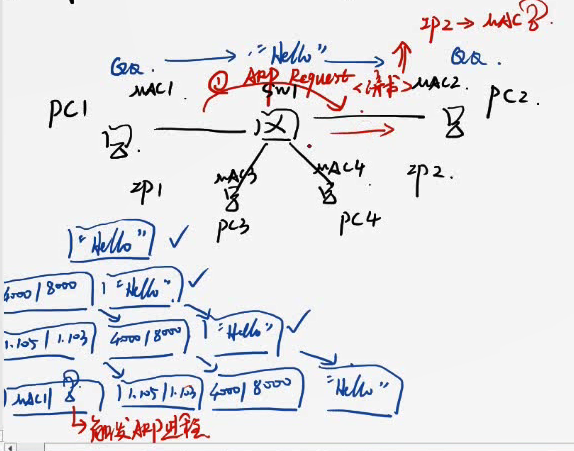 IP2 → MAC?
QQ. "Hello" QQ.
MAC1 ① ARP Request <请求> MAC2.
PC1 SW1 PC2.
MAC3 MAC4
IP1 IP2.
PC3 PC4
"Hello" ✓
8000 "Hello" ✓
1.105 / 1.103 4000 / 8000 "Hello" ✓
MAC1 ? 1.105 / 1.103 4000 / 8000 "Hello"
触发ARP进程